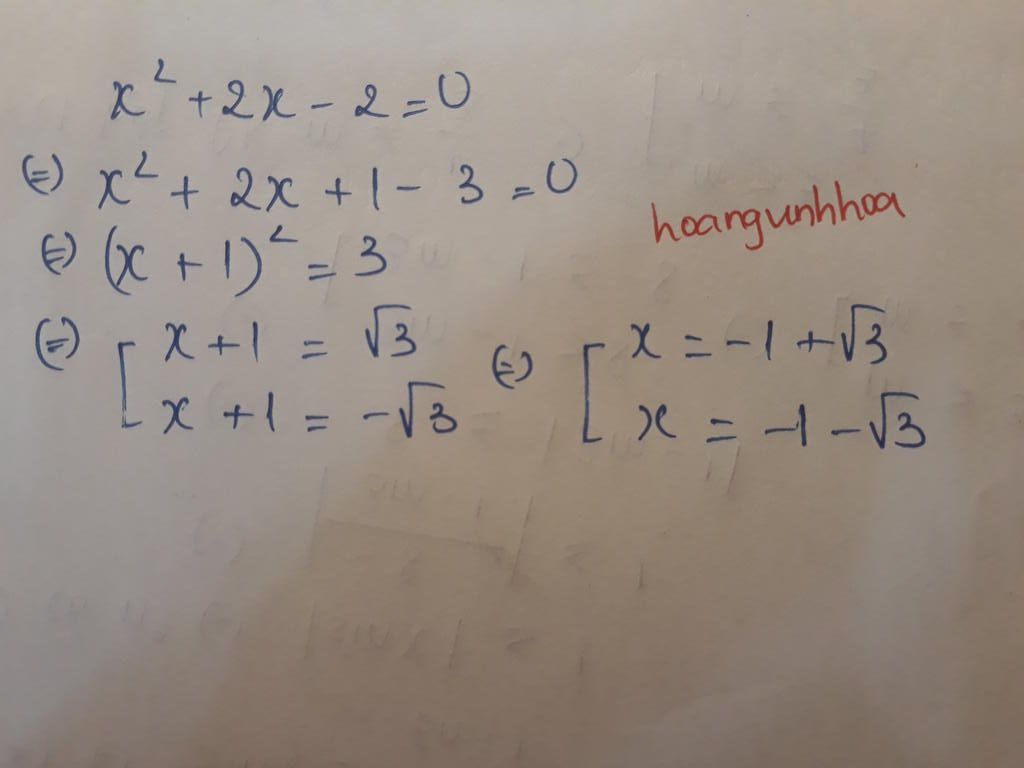 x² + 2x - 2 = 0
(=) x² + 2x + 1 - 3 = 0
hoangunhhoa
(=) (x + 1)² = 3
(=) [ x + 1 = √3 (=) [ x = -1 + √3
x + 1 = -√3 x = -1 - √3